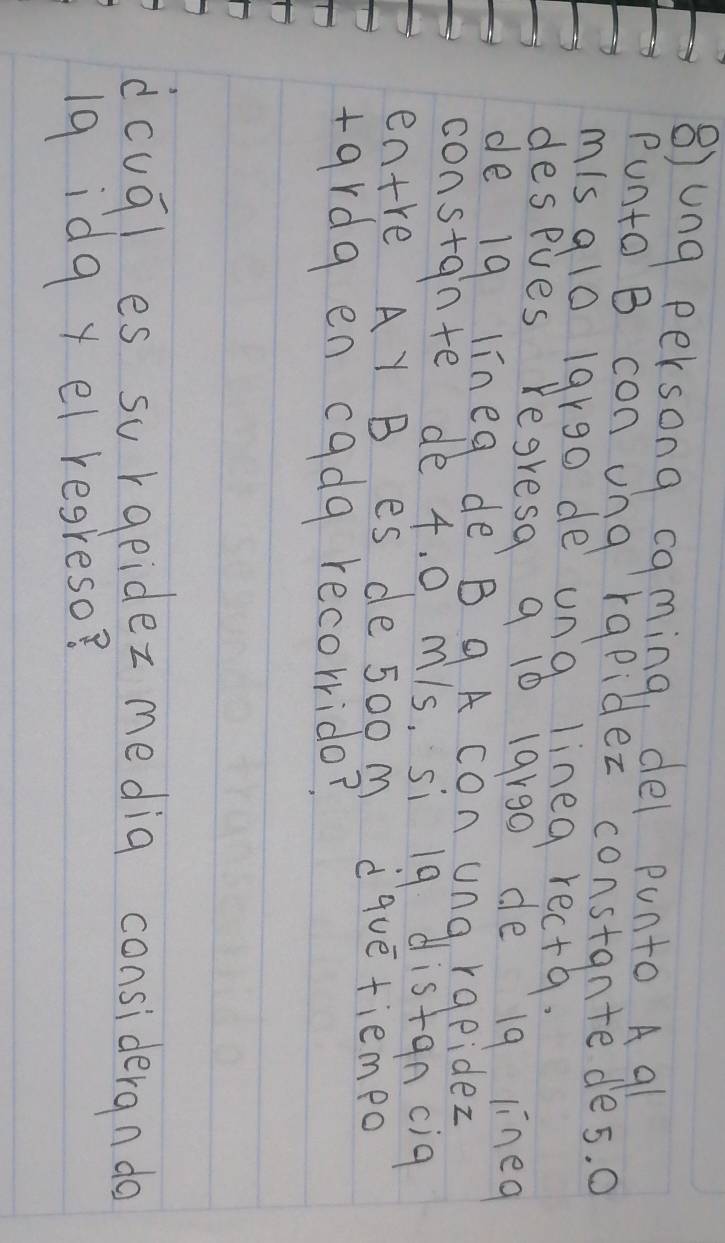 8) una persona camina del punto A al
punto B con una rapidez constante de 5.0
m/s alo largo de una linea recta.
despues regresa a lo largo de la línea
de la línea de B a A con una rapidez
constante de 4.0 m/s. si la distancia
entre A y B es de 500m ¿qué tiempo
tarda en cada recorrido?
¿cuál es su rapidez media considerando
la ida y el regreso?